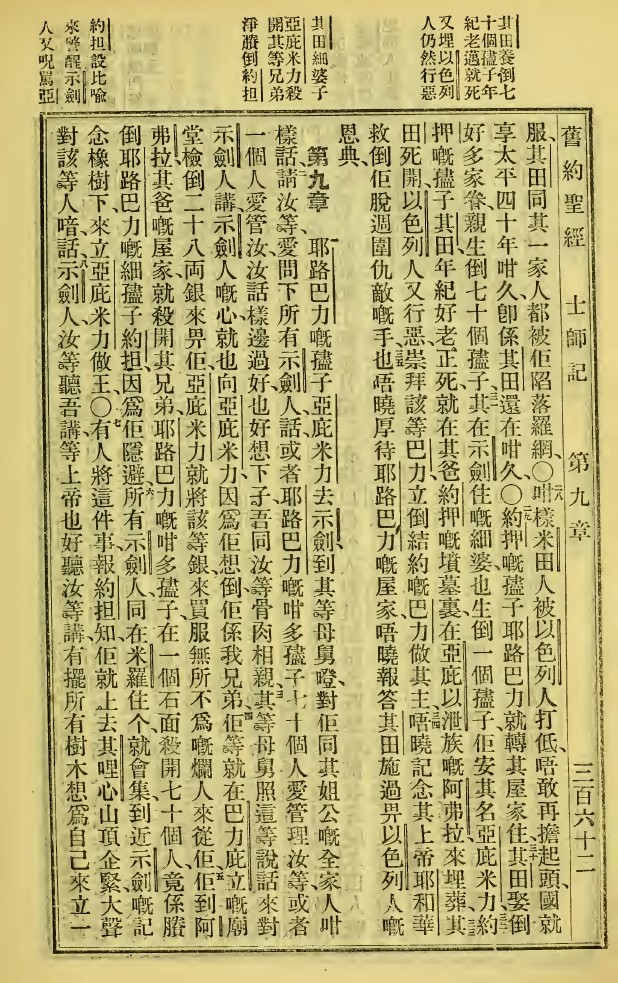 其田養倒七
十個孻子年
紀老邁就死
又埋以色列
人仍然行惡
其田細婆子
亞庇米力殺
開其等兄弟
淨賸倒約担
約担設比喩
來警醒示劍
人又呪罵亞
舊約聖經 士師記 第九章 三百六十二
服、其田同其一家人都被佢陷落羅網、〇二八咁樣米田人被以色列人打低、唔敢再擔起頭、國就
享太平四十年咁久、卽係其田還在咁久、〇二九約押嘅孻子耶路巴力就轉其屋家住、三十其田娶倒
好多家眷、親生倒七十個孻子、三一其在示劍住嘅細婆也生倒一個孻子、佢安其名亞庇米力、三二約
押嘅孻子其田年紀好老正死、就在其爸約押嘅墳墓裏、在亞庇以泄族嘅阿弗拉來埋葬、三三其
田死開、以色列人又行惡、崇拜該等巴力、立倒結約嘅巴力做其主、三四唔曉記念其上帝耶和華
救倒佢脫週圍仇敵嘅手、三五也唔曉厚待耶路巴力嘅屋家、唔曉報答其田施過畀以色列人嘅
恩典、
第九章 一耶路巴力嘅孻子亞庇米力去示劍、到其等母舅嶝、對佢同其姐公嘅全家人咁
樣話、二請汝等愛問下所有示劍人、話或者耶路巴力嘅咁多孻子七十個人愛管理汝等、或者
一個人愛管汝、汝話樣邊過好、也好想下子、吾同汝等骨肉相親、三其等母舅照這等說話來對
示劍人講、示劍人嘅心就也向亞庇米力、因爲佢想倒佢係我兄弟、四佢等就在巴力庇立嘅廟
堂檢倒二十八両銀來畀佢、亞庇米力就將該等銀來買服無所不爲嘅爛人來從佢、五佢到阿
弗拉其爸嘅屋家、就殺開其兄弟、耶路巴力嘅咁多孻子、在一個石面殺開七十個人、竟係賸
倒耶路巴力嘅細孻子約担、因爲佢隱避、六所有示劍人同在米羅住个就會集、到近示劍嘅記
念橡樹下、來立亞庇米力做王、〇七有人將這件事報約担知、佢就上去其哩心山頂企緊、大聲
對該等人喑話、示劍人、汝等聽吾講、等上帝也好聽汝等講、八有擺所有樹木想爲自己來立一